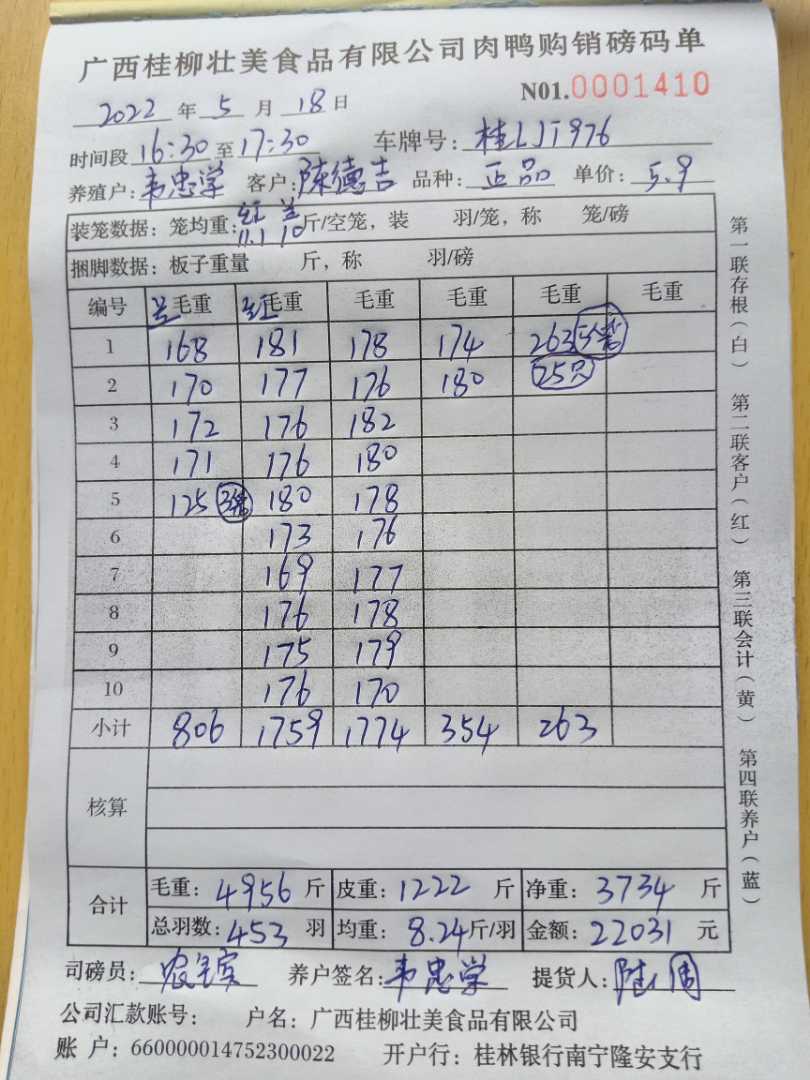 广西桂柳壮美食品有限公司肉鸭购销磅码单
N01.0001410
2022 年 5 月 18 日
时间段 16:30 至 17:30 车牌号: 桂LJT976
养殖户: 韦忠学 客户: 陈德吉 品种: 正品 单价: 5.9
红 兰
装笼数据: 笼均重: 11.1 10 斤/空笼, 装 羽/笼, 称 笼/磅
捆脚数据: 板子重量 斤, 称 羽/磅
编号 兰毛重 红毛重 毛重 毛重 毛重 毛重
1 168 181 178 174 263 5笼
2 170 177 176 180 25只
3 172 176 182
4 171 176 180
5 125 3笼 180 178
6 173 176
7 169 177
8 176 178
9 175 179
10 176 170
小计 806 1759 1774 354 263
核算
合计 毛重: 4956 斤 皮重: 1222 斤 净重: 3734 斤
总羽数: 453 羽 均重: 8.24 斤/羽 金额: 22031 元
司磅员: 养户签名: 韦忠学 提货人:
公司汇款账号: 户名: 广西桂柳壮美食品有限公司
账 户: 660000014752300022 开户行: 桂林银行南宁隆安支行
第一联存根(白) 第二联客户(红) 第三联会计(黄) 第四联养户(蓝)